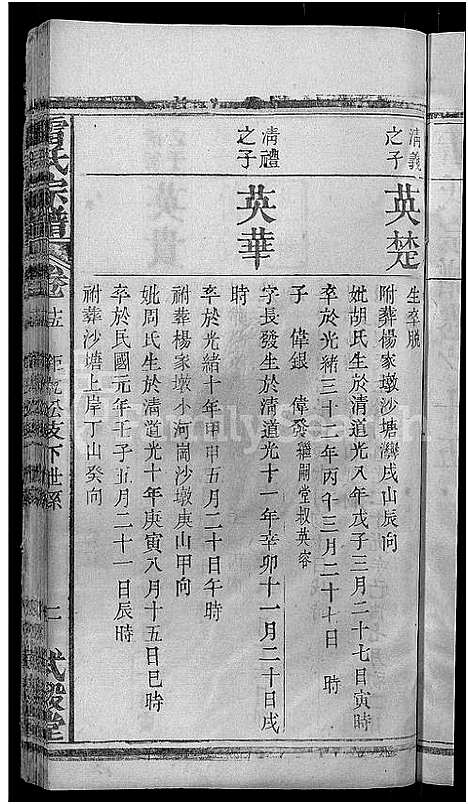 清義之子
英楚
生卒脫
附葬楊家墩沙塘灣戌山辰向
妣胡氏生於清道光八年戊子三月二十七日寅時
卒於光緒三十二年丙午三月二十七日　時
子　偉銀　偉發繼嗣堂叔英容
清禮之子
英華
字長發生於清道光十一年辛卯十一月二十日戌
時
卒於光緒十年甲申五月二十日午時
祔葬楊家墩小河圊沙墩庚山甲向
妣周氏生於清道光十年庚寅八月十五日巳時
卒於民國元年壬子五月二十一日辰時
祔葬沙塘上岸丁山癸向
雷氏宗譜
卷之十五
公支下世系
二
武毅堂
FamilySearch